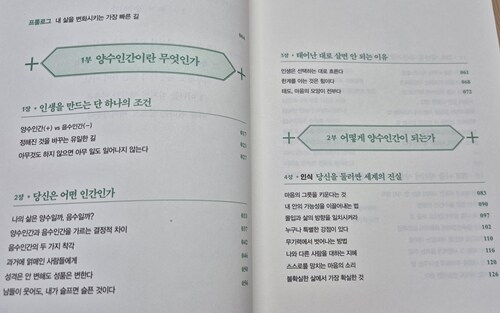 프롤로그 내 삶을 변화시키는 가장 빠른 길
1부 양수인간이란 무엇인가
1장 • 인생을 만드는 단 하나의 조건
양수인간(+) vs 음수인간(−)
정해진 것을 바꾸는 유일한 길
아무것도 하지 않으면 아무 일도 일어나지 않는다
2장 • 당신은 어떤 인간인가
나의 삶은 양수일까, 음수일까?
양수인간과 음수인간을 가르는 결정적 차이
음수인간의 두 가지 착각
과거에 얽매인 사람들에게
성격은 안 변해도 성품은 변한다
남들이 웃어도, 내가 슬프면 슬픈 것이다
3장 • 태어난 대로 살면 안 되는 이유
인생은 선택하는 대로 흐른다 065
한계를 아는 것은 힘이다 068
태도, 마음의 모양이 전부다 073
2부 어떻게 양수인간이 되는가
4장 • 인식 당신을 둘러싼 세계의 진실
마음의 그릇을 키운다는 것 083
내 안의 가능성을 이끌어내는 법 090
몰입과 삶의 방향을 일치시키라 097
누구나 특별한 강점이 있다 102
무기력에서 벗어나는 방법 110
나와 다른 사람을 대하는 지혜 116
스스로를 망치는 마음의 소리 120
불확실한 삶에서 가장 확실한 것 126